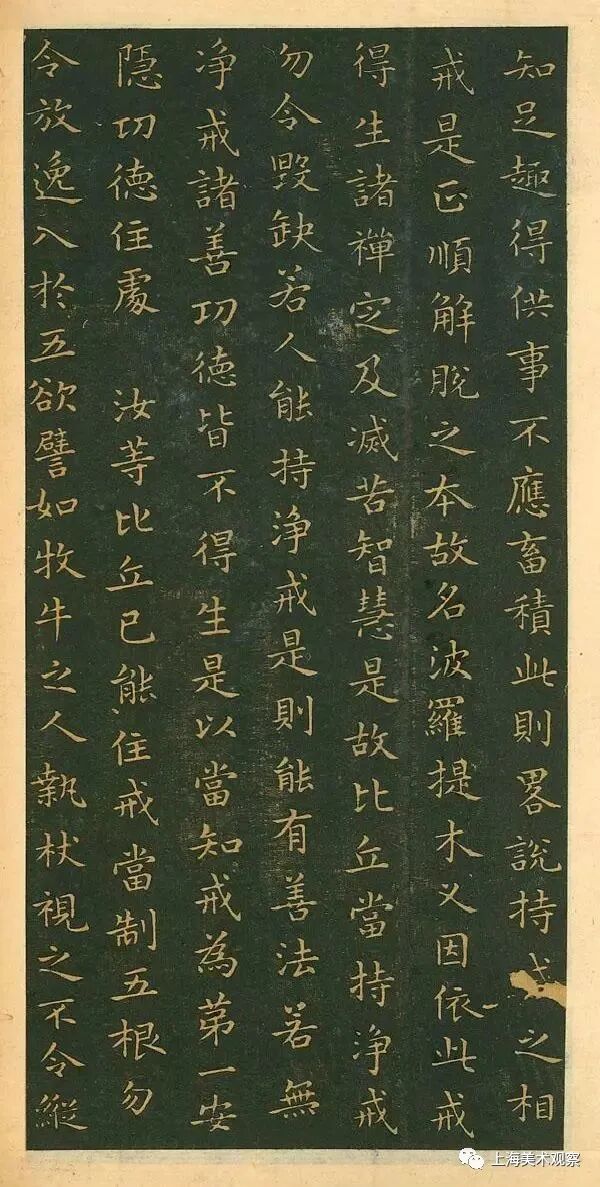 知足趣得供事不應畜積此則畧説持戒之相
戒是正順解脱之本故名波羅提木叉因依此戒
得生諸禪定及滅苦智慧是故比丘當持浄戒
勿令毀缺若人能持浄戒是則能有善法若無
浄戒諸善功德皆不得生是以當知戒為第一安
隱功德住處　汝等比丘已能住戒當制五根勿
令放逸入於五欲譬如牧牛之人執杖視之不令縱
上海美术观察